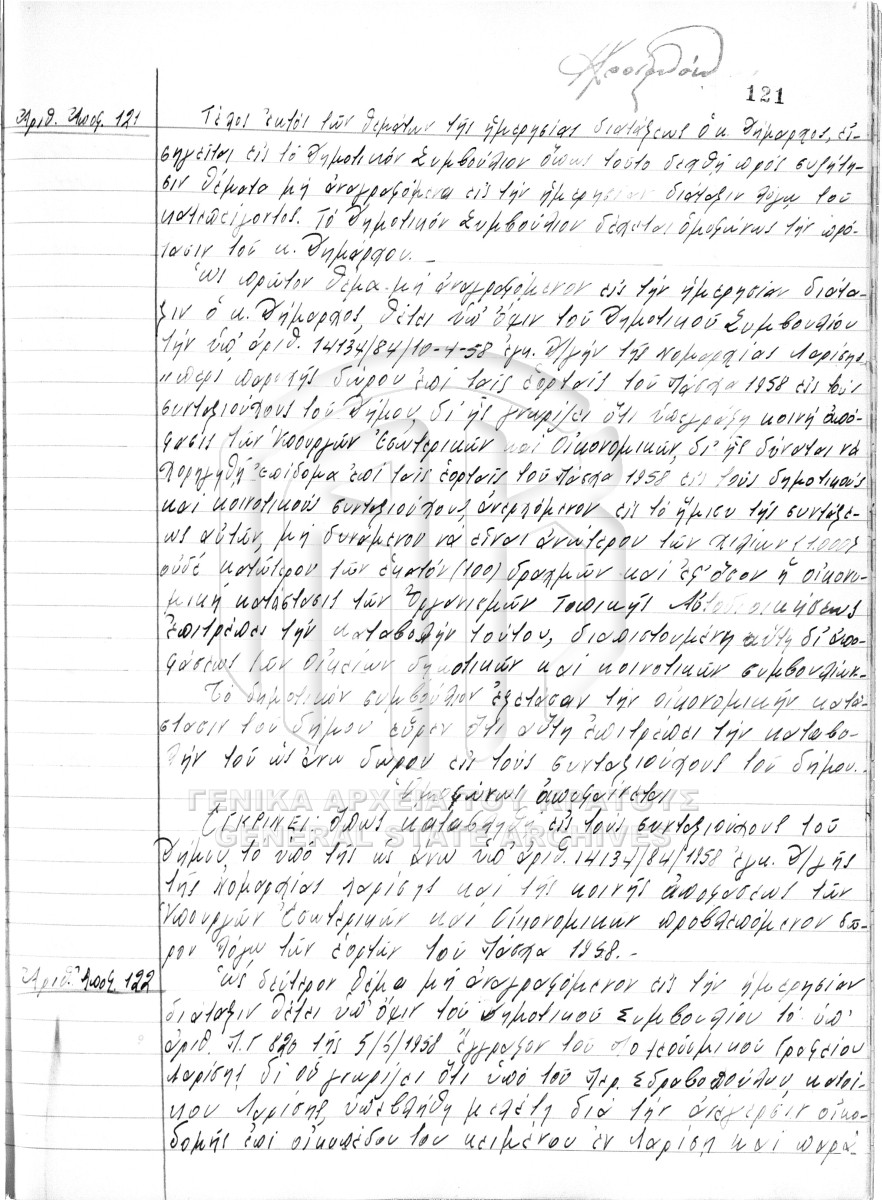 121
Ἀριθ. Ἀποφ. 121
Τέλος ἐκτός τῶν θεμάτων τῆς ἡμερησίας διατάξεως ὁ κ. Δήμαρχος, εἰ-
σηγεῖται εἰς τό Δημοτικόν Συμβούλιον ὅπως τοῦτο δεχθῇ πρός συζήτη-
σιν θέματα μή ἀναγραφόμενα εἰς τήν ἡμερησίαν διάταξιν λόγω τοῦ
κατεπείγοντος. Τό Δημοτικόν Συμβούλιον δέχεται ὁμοφώνως τήν πρό-
τασιν τοῦ κ. Δημάρχου.-
Ὡς πρῶτον θέμα μή ἀναγραφόμενον εἰς τήν ἡμερησίαν διάτα-
ξιν ὁ κ. Δήμαρχος θέτει ὑπ' ὄψιν τοῦ Δημοτικοῦ Συμβουλίου
τήν ὑπ' ἀριθ. 14134/84/10-4-58 ἐγκ. Δ/γήν τῆς Νομαρχίας Λαρίσης
"περί παροχῆς δώρου ἐπί ταῖς ἑορταῖς τοῦ Πάσχα 1958 εἰς τούς
συνταξιούχους τοῦ Δήμου, δι' ἧς γνωρίζει ὅτι ὑπεγράφη κοινή ἀπό-
φασις τῶν Ὑπουργῶν Ἐσωτερικῶν καί Οἰκονομικῶν, δι' ἧς δύναται νά
χορηγηθῇ ἐπίδομα ἐπί ταῖς ἑορταῖς τοῦ Πάσχα 1958 εἰς τούς δημοτικούς
καί κοινοτικούς συνταξιούχους, ἀνερχόμενον εἰς τό ἥμισυ τῆς συντάξε-
ως αὐτῶν, μή δυναμένου νά εἶναι ἀνώτερον τῶν χιλίων (1.000)
οὐδέ κατώτερον τῶν ἑκατόν (100) δραχμῶν καί ἐφ' ὅσον ἡ οἰκονο-
μική κατάστασις τῶν Ὀργανισμῶν Τοπικῆς Αὐτοδιοικήσεως
ἐπιτρέπει τήν καταβολήν τούτου, διαπιστουμένη αὕτη δι' ἀπο-
φάσεως τῶν οἰκείων δημοτικῶν καί κοινοτικῶν συμβουλίων.-
Τό δημοτικόν συμβούλιον ἐξετάσαν τήν οἰκονομικήν κατά-
στασιν τοῦ δήμου εὗρεν ὅτι αὕτη ἐπιτρέπει τήν καταβο-
λήν τοῦ ὡς ἄνω δώρου εἰς τούς συνταξιούχους τοῦ δήμου.-
Ὁμοφώνως ἀποφαίνεται
ΓΕΝΙΚΑ ΑΡΧΕΙΑ ΤΟΥ ΚΡΑΤΟΥΣ
Ἐγκρίνει ὅπως καταβληθῇ εἰς τούς συνταξιούχους τοῦ
GENERAL STATE ARCHIVES
Δήμου τό ὑπό τῆς ὡς ἄνω ὑπ' ἀριθ. 14134/84/1958 ἐγκ. Δ/γῆς
τῆς Νομαρχίας Λαρίσης καί τῆς κοινῆς ἀποφάσεως τῶν
Ὑπουργῶν Ἐσωτερικῶν καί Οἰκονομικῶν προβλεπόμενον δῶ-
ρον λόγω τῶν ἑορτῶν τοῦ Πάσχα 1958.-
Ἀριθ. Ἀποφ. 122
Ὡς δεύτερον θέμα μή ἀναγραφόμενον εἰς τήν ἡμερησίαν
διάταξιν θέτει ὑπ' ὄψιν τοῦ Δημοτικοῦ Συμβουλίου τό ὑπ'
ἀριθ. τῆς 1958 ἔγγραφον τοῦ Πολεοδομικοῦ Γραφείου
Λαρίσης δι' οὗ γνωρίζει ὅτι ὑπό τοῦ Περ. Σδραβοπούλου, κατοί-
κου Λαρίσης, ὑπεβλήθη μελέτη διά τήν ἀνέγερσιν οἰκο-
δομῆς ἐπί οἰκοπέδου του κειμένου ἐν Λαρίσῃ καί παρά